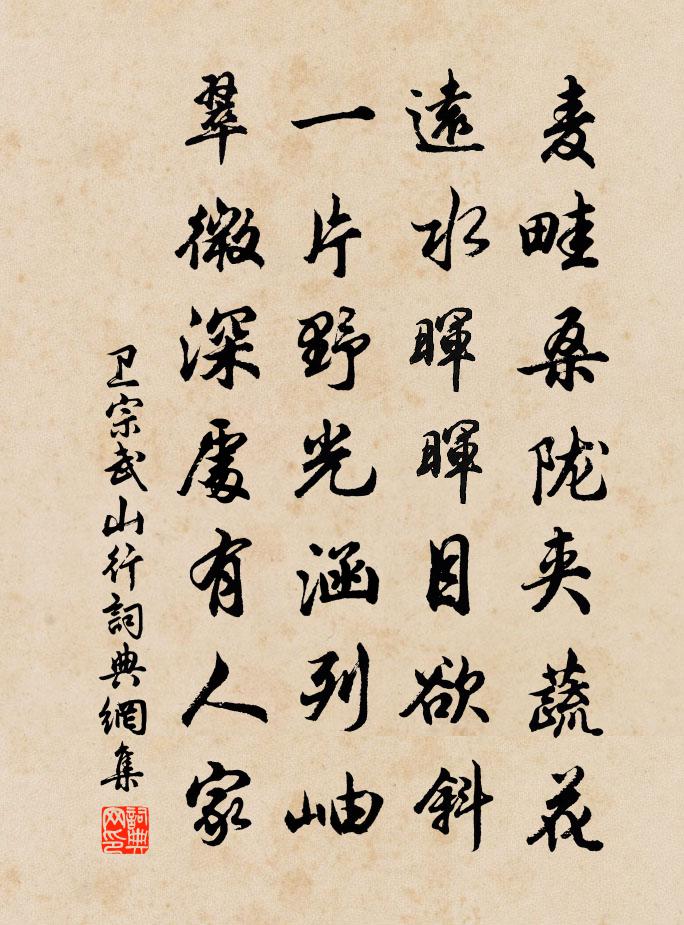 麦畦桑陇夹蔬花
遠水暉暉目欲斜
一片野光涵列岫
翠微深處有人家
卫宗武山行詞典網集
詞典网印